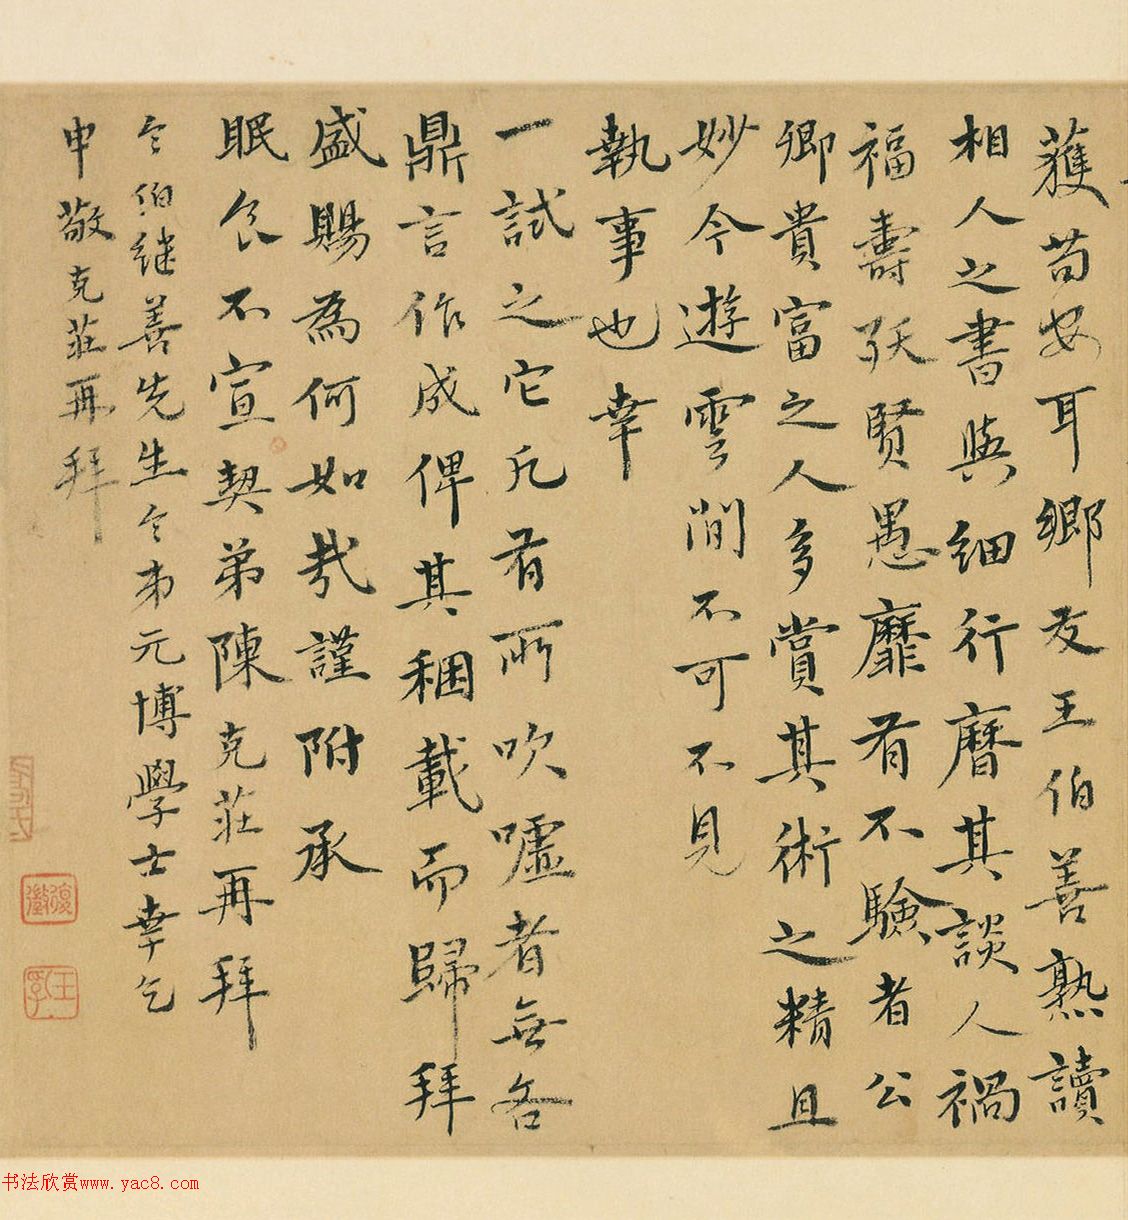 獲苟安耳鄉友王伯善熟讀
相人之書與細行曆其談人禍
福壽殀賢愚靡有不驗者公
卿貴富之人多賞其術之精且
妙今遊雲間不可不見
執事也幸
一試之它凡有所吹噓者無吝
鼎言作成俾其稛載而歸拜
盛賜為何如哉謹附承
眠食不宣契弟陳克莊再拜
令伯继善先生令弟元博學士幸乞
申敬克莊再拜
復徵
王
书法欣赏www.yac8.com